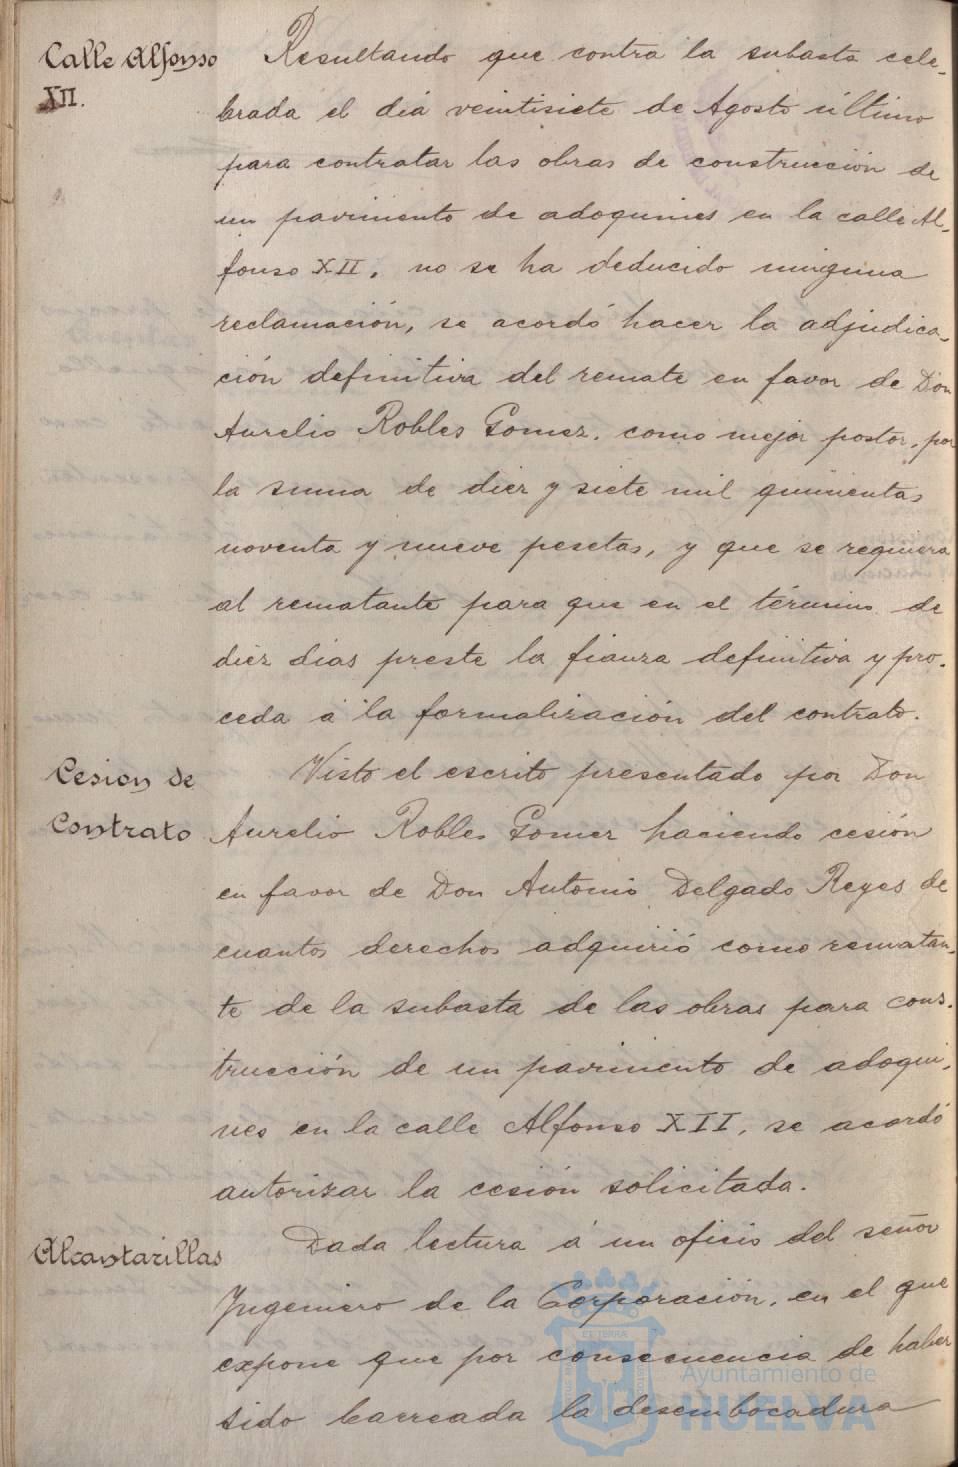 Calle Alfonso
XII.
Resultando que contra la subasta cele-
brada el dia veintisiete de Agosto último
para contratar las obras de construcción de
un pavimento de adoquines en la calle Al-
fonso XII, no se ha deducido ninguna
reclamación, se acordó hacer la adjudica-
ción definitiva del remate en favor de Don
Aurelio Robles Gomez, como mejor postor, por
la suma de diez y siete mil quinientas
noventa y nueve pesetas, y que se requiera
al rematante para que en el término de
diez dias preste la fianza definitiva y pro-
ceda á la formalización del contrato.
Cesion de
Contrato
Visto el escrito presentado por Don
Aurelio Robles Gomez haciendo cesión
en favor de Don Antonio Delgado Reyes de
cuantos derechos adquirió como rematan-
te de la subasta de las obras para cons-
trucción de un pavimento de adoqui-
nes en la calle Alfonso XII, se acordó
autorizar la cesión solicitada.
Alcantarillas
Dada lectura á un oficio del señor
Ingeniero de la Corporación, en el que
expone que por consecuencia de haber
sido barreada la desembocadura
Ayuntamiento de
HUELVA